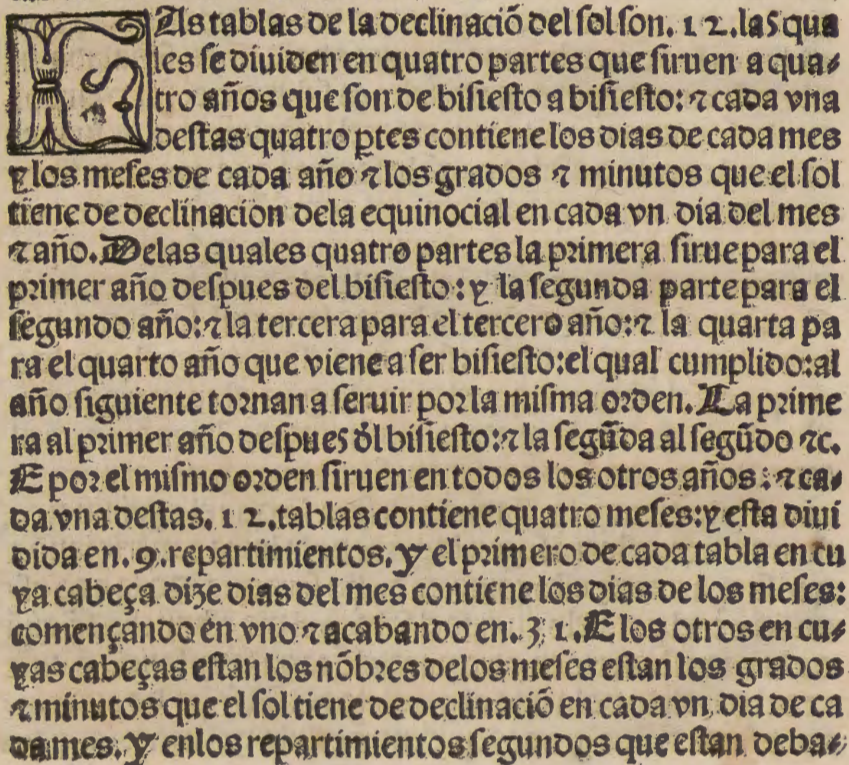 LAs tablas de la declinaciō del ſol ſon. 12. las qua
les ſe diuiden en quatro partes que ſiruen a qua⸗
tro años que ſon de biſieſto a biſieſto: ⁊ cada vna
deſtas quatro ꝑtes contiene los dias de cada mes
y los meſes de cada año ⁊ los grados ⁊ minutos que el ſol
tiene de declinacion dela equinocial en cada vn dia del mes
⁊ año. Delas quales quatro partes la primera ſirue para el
primer año deſpues del biſieſto: y la ſegunda parte para el
ſegundo año: ⁊ la tercera para el tercero año: ⁊ la quarta pa
ra el quarto año que viene a ſer biſieſto: el qual cumplido: al
año ſiguiente tornan a ſeruir por la miſma orden. La prime
ra al primer año deſpues đl biſieſto: ⁊ la ſegūda al ſegūdo ⁊c.
E por el miſmo orden ſiruen en todos los otros años: ⁊ ca⸗
da vna deſtas. 12. tablas contiene quatro meſes: y eſta diui
dida en. 9. repartimientos. y el primero de cada tabla en cu
ya cabeça dize dias del mes contiene los dias de los meſes:
començando en vno ⁊ acabando en. 31. E los otros en cu⸗
yas cabeças eſtan los nōbres delos meſes eſtan los grados
⁊ minutos que el ſol tiene de declinaciō en cada vn dia de ca
da mes. y enlos repartimientos ſegundos que eſtan deba⸗